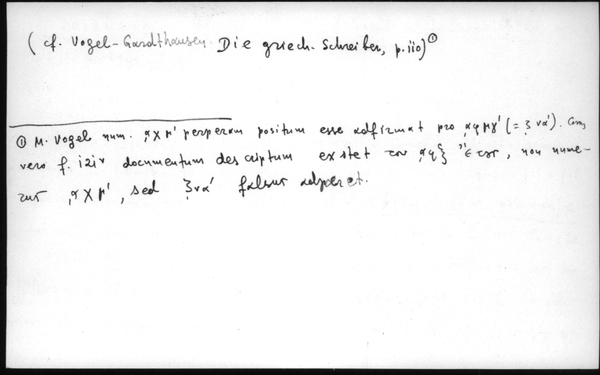 (cf. Vogel-Gardthausen. Die griech. Schreiber, p. 110)①
① M. Vogel num. ͵αχμ' perperam positum esse adfirmat pro ͵αϥμγ' (= ͵ϛυα'). Cum
vero f. 121v documentum descriptum exstet του ͵αϥ ἔτους, non nume-
rus ͵αχμ', sed ͵ϛυα' falsus adparet.